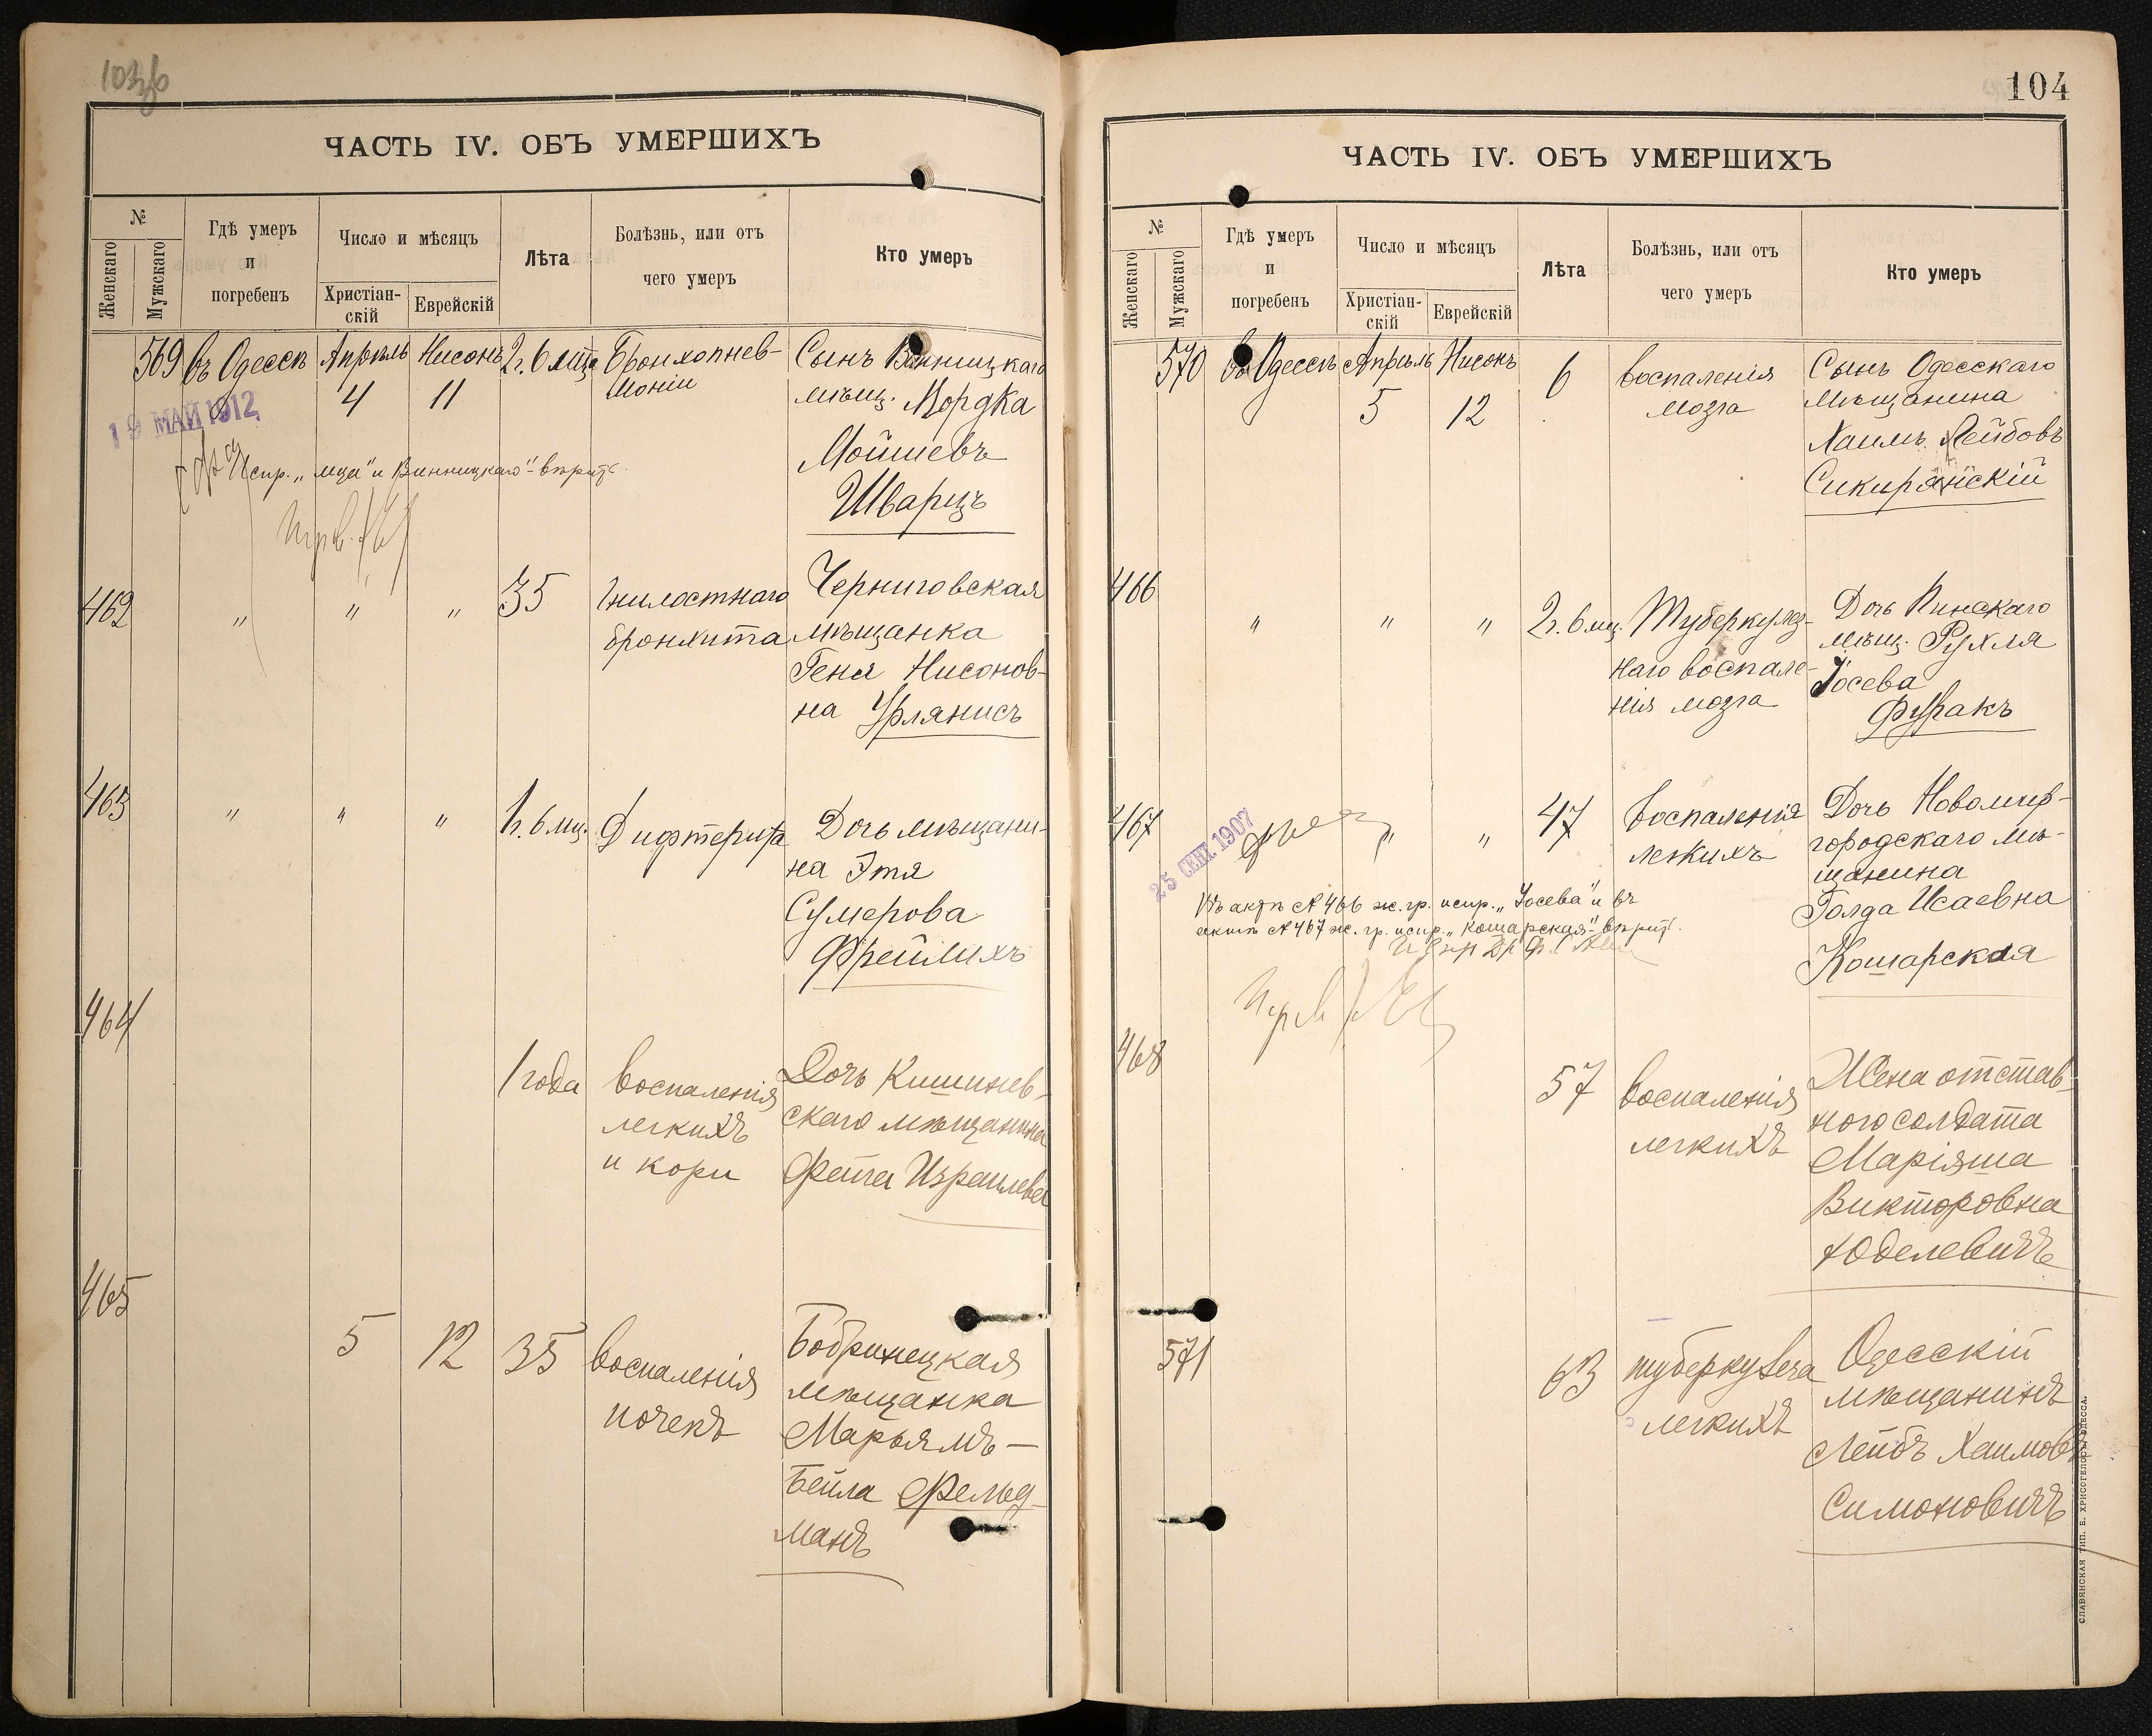 103об
ЧАСТЬ IV. ОБЪ УМЕРШИХЪ
№
Женскаго
Мужскаго
Гдѣ умеръ
и
погребенъ
Число и мѣсяцъ
Христіан-
скій
Еврейскій
Лѣта
Болѣзнь, или отъ
чего умеръ
Кто умеръ
569 въ Одессѣ Апрѣль Нисонъ 2г. 6 мца Бронхопнев- Сынъ Винницкаго
4 11 моніи мѣщ. Мордка
19 МАЙ 1912
Мойшевъ
Испр. „мца" и Винницкаго"-вѣрить.
Шварцъ
462 " " " 35 Гнилостнаго Черниговская
бронхита мѣщанка
Геня Нисонов-
на Урлянисъ
463 " " " 1г. 6 мц. Дифтерита Дочь мѣщани-
на Этя
Сумерова
Фрейлихъ
464
1 года воспаленія Дочь Кишинев-
легкихъ скаго мѣщанина
и кори Фейга Израилева
465
5 12 35 воспаленія Бобринецкая
почекъ мѣщанка
Марьямъ-
Бейла Фельд-
манъ
104
ЧАСТЬ IV. ОБЪ УМЕРШИХЪ
№
Женскаго
Мужскаго
Гдѣ умеръ
и
погребенъ
Число и мѣсяцъ
Христіан-
скій
Еврейскій
Лѣта
Болѣзнь, или отъ
чего умеръ
Кто умеръ
570 въ Одессѣ Апрѣль Нисонъ 6 воспаленія Сынъ Одесскаго
5 12 мозга мѣщанина
Хаимъ Лейбовъ
Сикирянскій
466 " " " 2г. 6 мц. Туберкулез- Дочь Пинскаго
наго воспале- мѣщ. Рухля
нія мозга Іосева
Фурахъ
467 " " 47 воспаленія Дочь Новомир-
легкихъ городскаго мѣ-
щанина
25 СЕНТ. 1907
Въ актѣ № 466 ж. гр. испр. „Іосева" и въ
актѣ № 467 ж. гр. испр. „Кошарская"-вѣрить.
Голда Исаевна
Кошарская
468
57 воспаленія Жена отстав-
легкихъ ного солдата
Маріяша
Викторовна
Юделевичъ
571 63 туберкулеза Одесскій
легкихъ мѣщанинъ
Лейбъ Хаимовъ
Симоновичъ
СЛАВЯНСКАЯ ТИП. Е. ХРИСОГЕЛОСЪ, ОДЕССА.